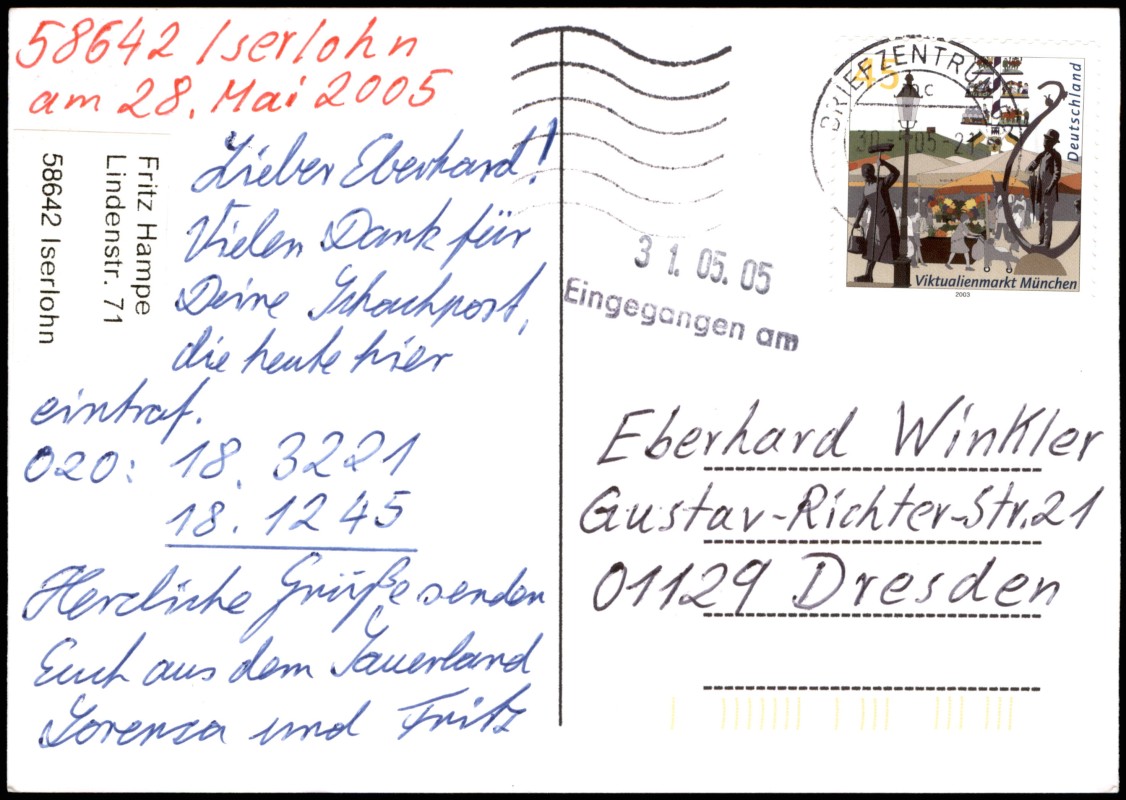 58642 Iserlohn
am 28. Mai 2005
Fritz Hampe
Lindenstr. 71
58642 Iserlohn
Lieber Eberhard!
Vielen Dank für
Deine Schachpost,
die heute hier
eintraf.
020: 18. 3221
18. 1245
Herzliche Grüße senden
Euch aus dem Sauerland
Lorenza und Fritz
BRIEFZENTRUM
45
Deutschland
Viktualienmarkt München
2003
31. 05. 05
Eingegangen am
Eberhard Winkler
Gustav-Richter-Str. 21
01129 Dresden